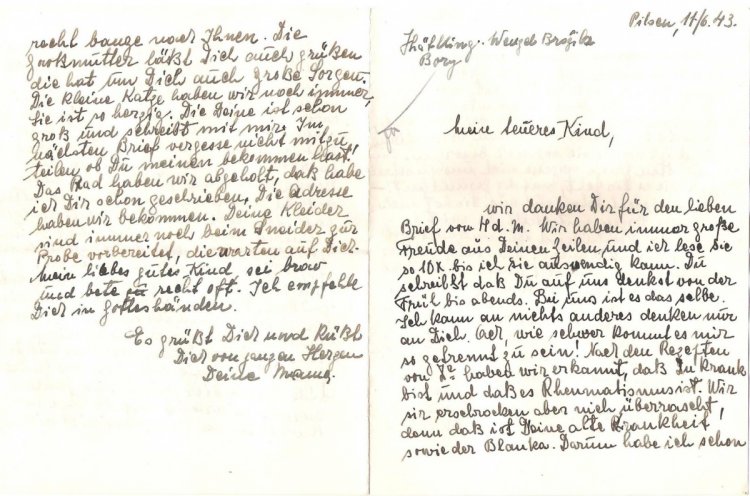 Pilsen, 11/6. 43.
Häftling. Wenzel Brožik
Bory
Mein teueres Kind,
wir danken Dir für den lieben
Brief vom 4 d. M. Wir haben immer große
Freude aus Deinen Zeilen und ich lese Sie
so 10x bis ich Sie auswendig kann. Du
schreibst daß Du auf uns denkst von der
Früh bis abends. Bei uns ist es das selbe.
Ich kann an nichts anderes denken nur
an Dich. Ach, wie schwer kommt es mir
so getrennt zu sein! Nach den Rezepten
von Dr haben wir erkannt, daß Du krank
bist und daß es Rheumatismus ist. Wir
sir erschrocken aber nich überrascht,
denn daß ist Deine alte Krankheit
sowie der Blanka. Darum habe ich schon
recht bange nach Ihnen. Die
Großmutter läßt Dich auch grüßen
die hat um Dich auch große Sorgen.
Die kleine Katze haben wir noch immer,
Sie ist so herzig. Die Deine ist schon
groß und schreibt mit mir. Im
nächsten Brief vergesse nicht mitzu,
teilen ob Du meinen bekommen hast.
Das Rad haben wir abgeholt, daß habe
ich Dir schon geschrieben. Die Adresse
haben wir bekommen. Deine Kleider
sind immer noch beim Sneider zur
Probe vorbereitet, die warten auf Dich.
Mein liebes gutes Kind, sei brav
und bete recht oft. Ich empfehle
Dich in Gotteshänden.
Es grüßt Dich und küßt
Dich von ganzen Herzen
Deine Mama.